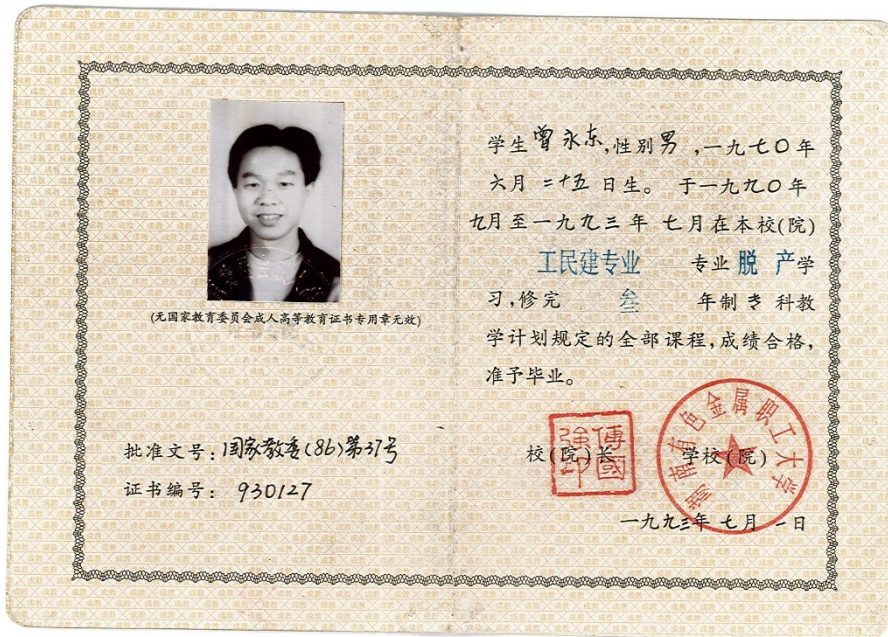 (无国家教育委员会成人高等教育证书专用章无效)
批准文号:国家教委(86)第37号
证书编号: 930127
学生曾永东,性别男,一九七〇年
六月二十五日生。于一九九〇年
九月至一九九三年七月在本校(院)
工民建专业 专业脱产学
习,修完 叁 年制专科教
学计划规定的全部课程,成绩合格,
准予毕业。
校(院)长 学校(院)
傅國強印
湖南有色金属职工大学
一九九三年七月一日